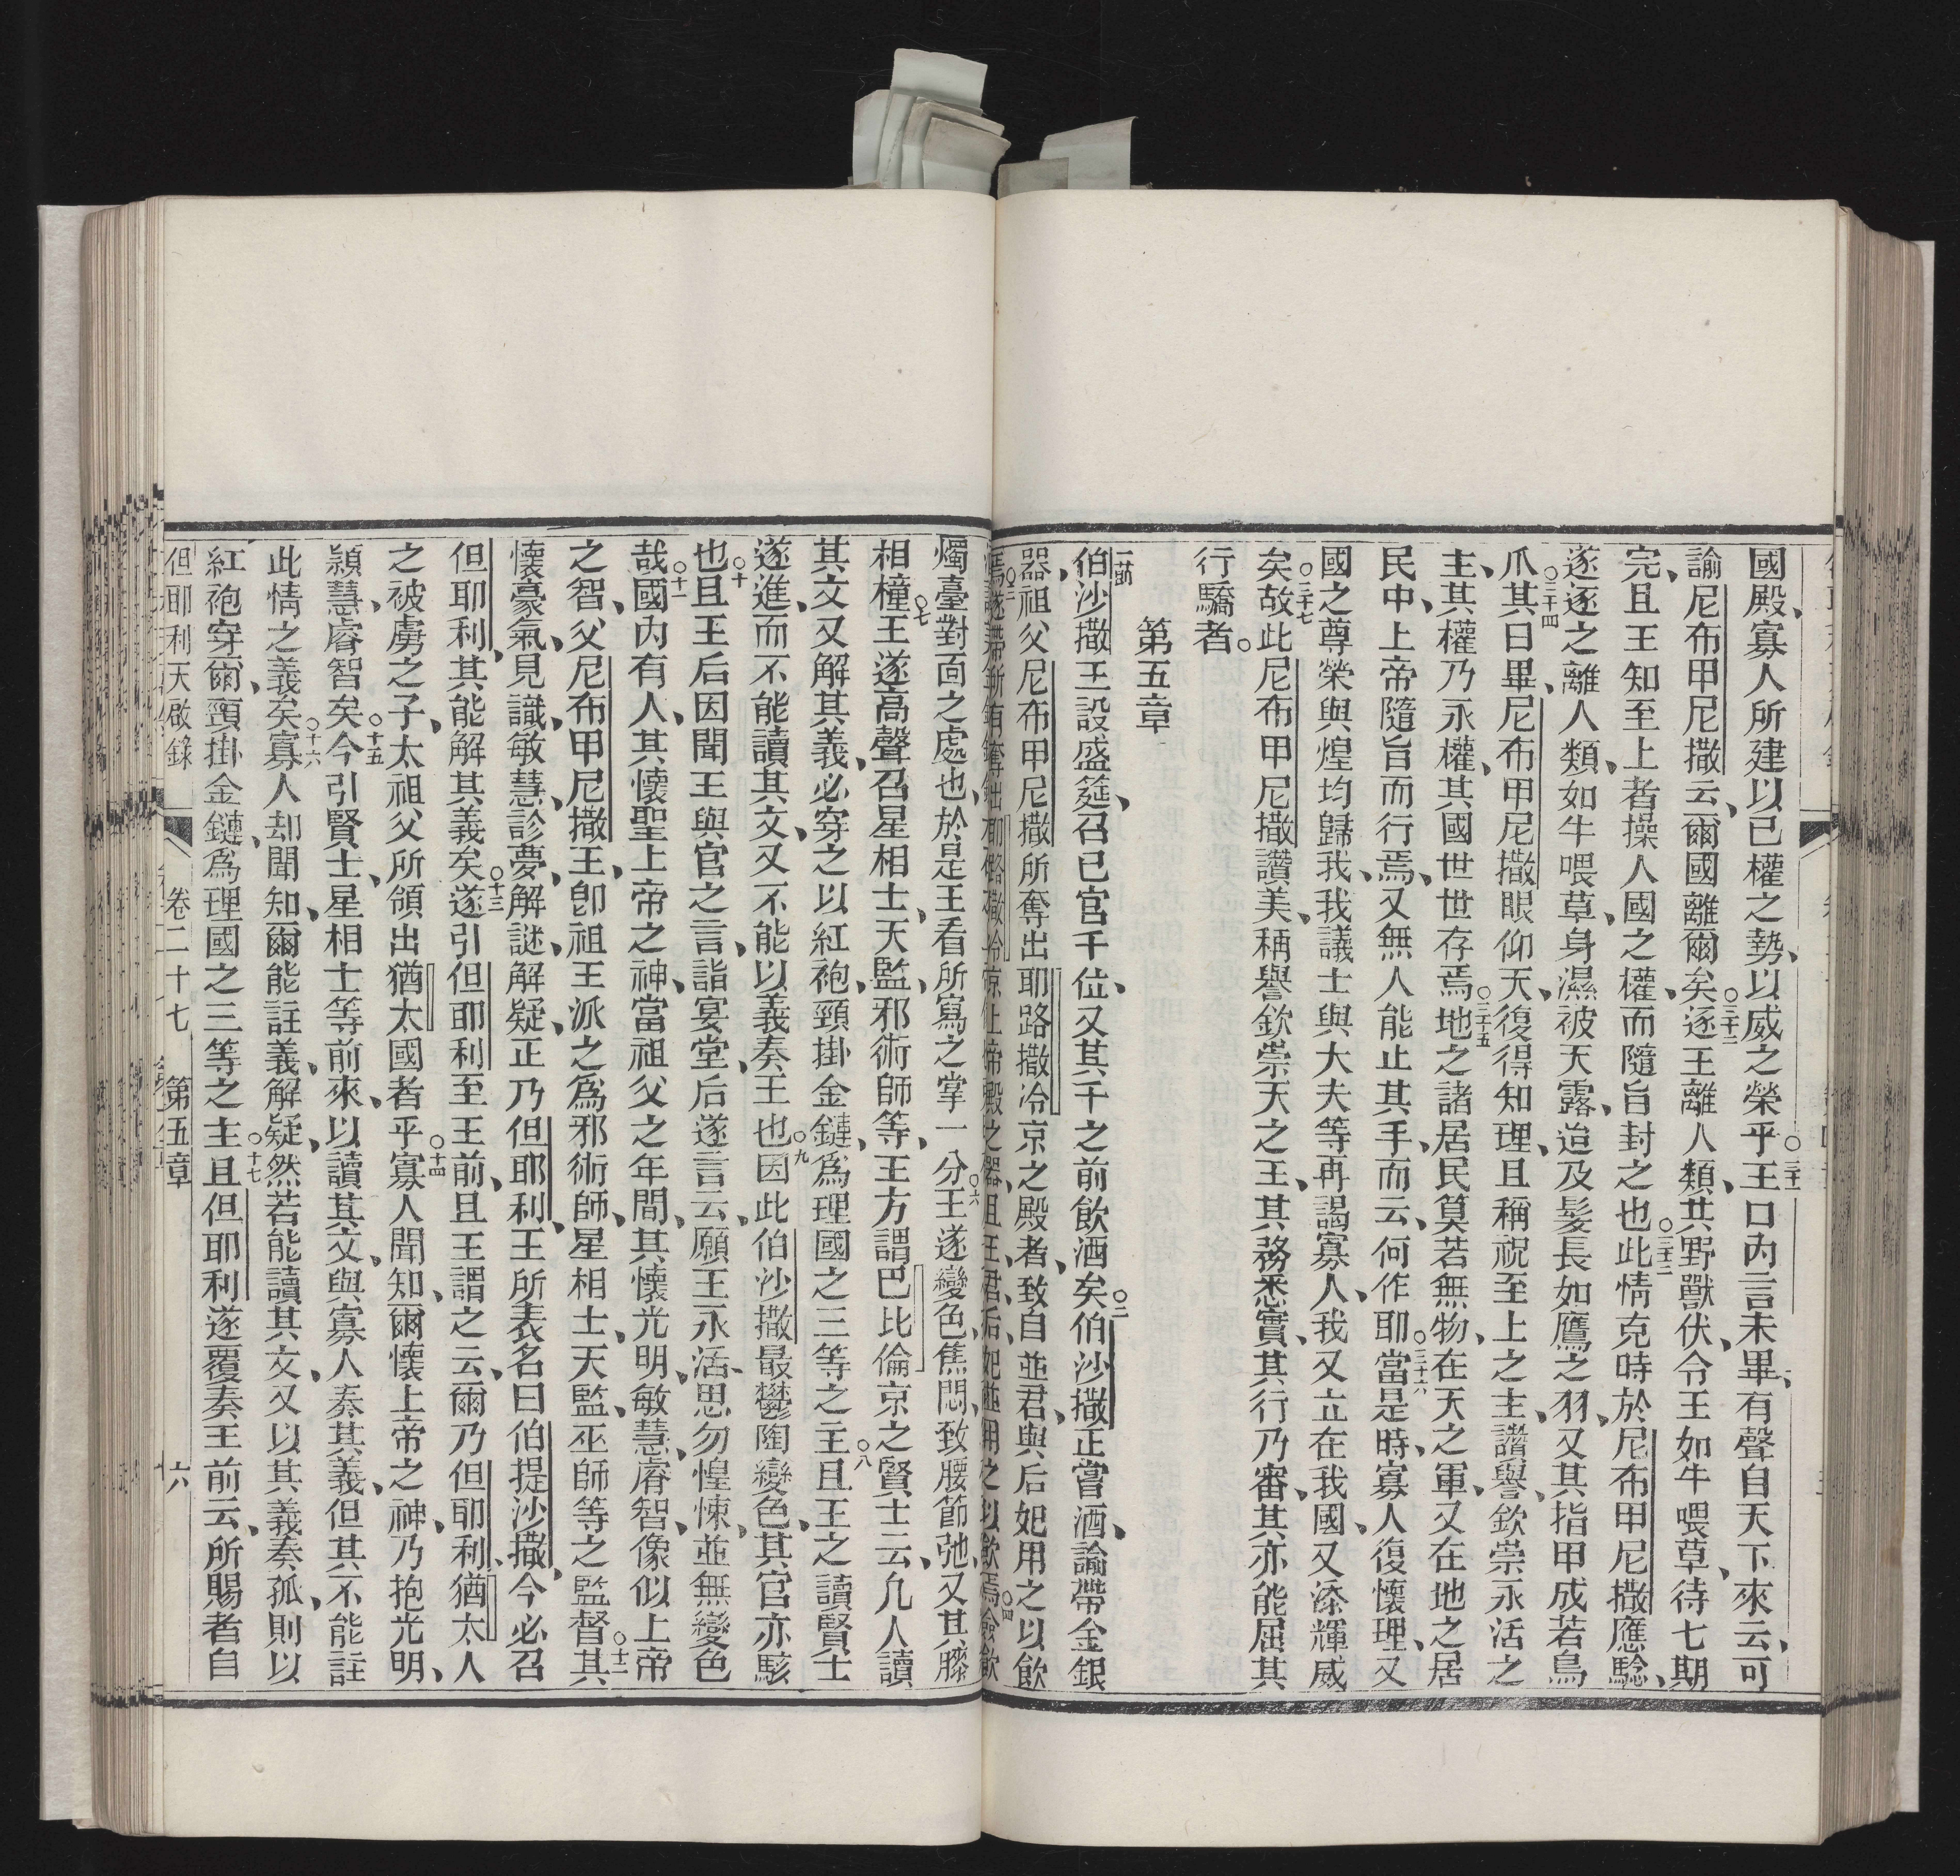 國殿、寡人所建以己權之勢、以威之榮乎○三十一王口內言未畢、有聲自天下來云、可
諭尼布甲尼撒云、爾國離爾矣○三十二逐王離人類、共野獸伏、令王如牛喂草、待七期
完、且王知至上者操人國之權、而隨旨封之也○三十三此情克時於尼布甲尼撒應騐、
遂逐之離人類、如牛喂草、身濕被天露、迨及髮長如鷹之羽、又其指甲成若鳥
爪○三十四其日畢、尼布甲尼撒眼仰天、復得知理、且稱祝至上之主、讚譽、欽崇永活之
主、其權乃永權、其國世世存焉○三十五地之諸居民算若無物、在天之軍、又在地之居
民中、上帝隨旨而行焉、又無人能止其手、而云、何作耶○三十六當是時、寡人復懷理、又
國之尊榮與煌均歸我、我議士與大夫等再謁寡人、我又立在我國、又添輝威
矣○三十七故此尼布甲尼撒讚美、稱譽欽崇天之王、其務悉實、其行乃審、其亦能屈其
行驕者。
第五章
一節伯沙撒王設盛筵、召己官千位、又其千之前飲酒矣○二伯沙撒正嘗酒、諭帶金銀
器、祖父尼布甲尼撒所奪出耶路撒冷京之殿者、致自並君、與后妃用之以飲
焉○三遂帶所有奪出耶路撒冷京上帝殿之器、且王、君、后、妃並用之以飲焉○四飲
燭臺對面之處也、於是王看所寫之掌一分○六王遂變色、焦悶、致腰節弛、又其膝
相橦○七王遂高聲召星相士、天監、邪術師等、王方謂巴比倫京之賢士云、凡人讀
其文又解其義、必穿之以紅袍、頸掛金鏈、爲理國之三等之主○八且王之讀賢士
遂進、而不能讀其文、又不能以義奏王也○九因此伯沙撒最鬱陶變色、其官亦駭
也○十且王后因聞王與官之言、詣宴堂、后遂言云、願王永活、思勿惶悚、並無變色
哉○十一國內有人、其懷聖上帝之神、當祖父之年間、其懷光明、敏慧、睿智、像似上帝
之智、父尼布甲尼撒王、卽祖王派之爲邪術師、星相士、天監、巫師等之監督○十二其
懷豪氣、見識、敏慧、診夢、解謎、解疑、正乃但耶利、王所表名曰伯提沙撒、今必召
但耶利、其能解其義矣○十三遂引但耶利至王前、且王謂之云、爾乃但耶利、猶太人
之被虜之子、太祖父所領出猶太國者乎○十四寡人聞知、爾懷上帝之神、乃抱光明、
穎慧、睿智矣○十五今引賢士、星相士等前來、以讀其文、與寡人奏其義、但其不能註
此情之義矣○十六寡人却聞知、爾能註義、解疑、然若能讀其文、又以其義奏孤、則以
紅袍穿爾、頸掛金鏈、爲理國之三等之主○十七且但耶利遂覆奏王前云、所賜者自
但耶利天啟錄 卷二十七 第五章 六